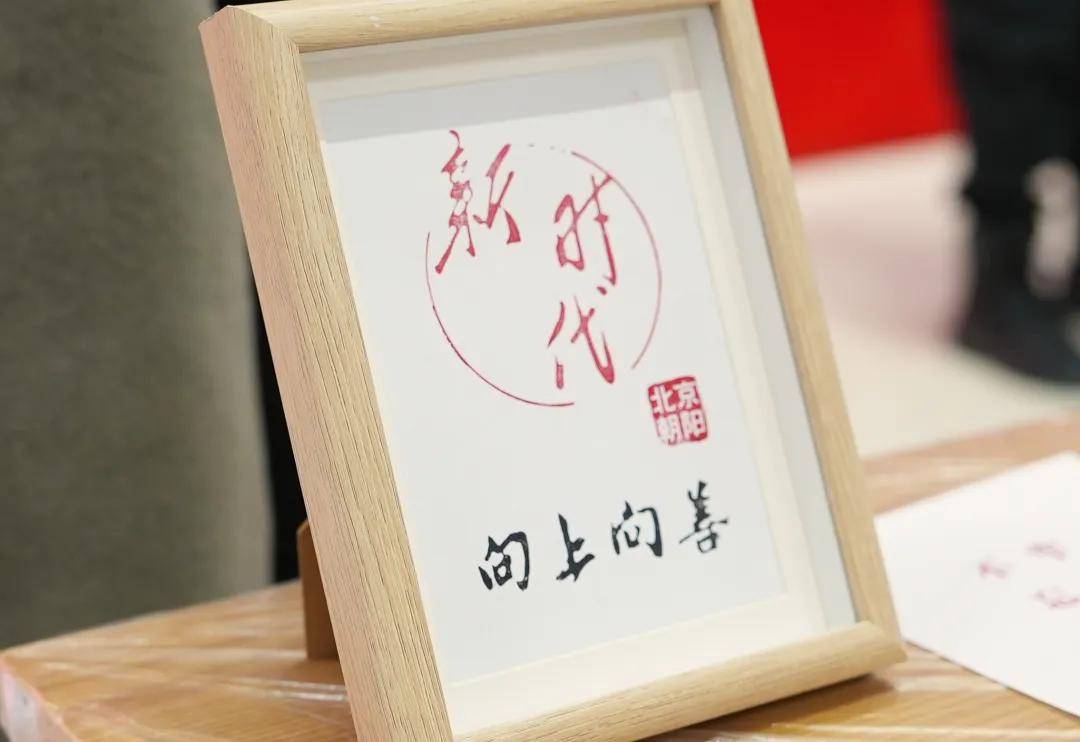 新时
代
北京
朝阳
向上向善